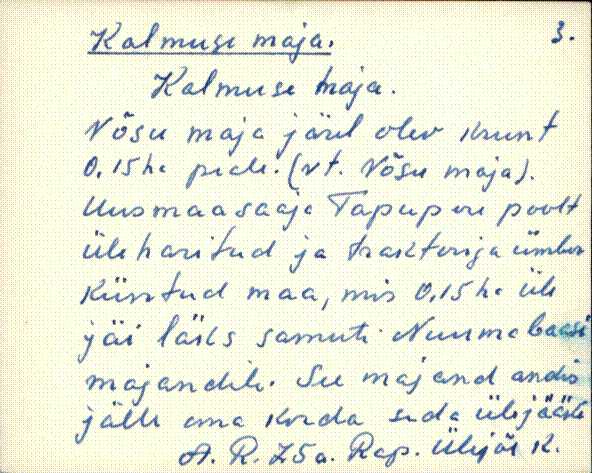 Kalmuse maja. 3.
Kalmuse maja.
Nõsu maja järel olev krunt
0,15 ha peale. (vt. Nõsu maja).
Uusmaasaaja Tapupere poolt
üleharitud ja traktoriga ümber
küntud maa, mis 0,15 ha üle
jäi läks samuti Nuume baasi
majandile. See majand andis
jälle oma korda seda ülejääki
A. R. 75a. Rap. Ülejõe k.